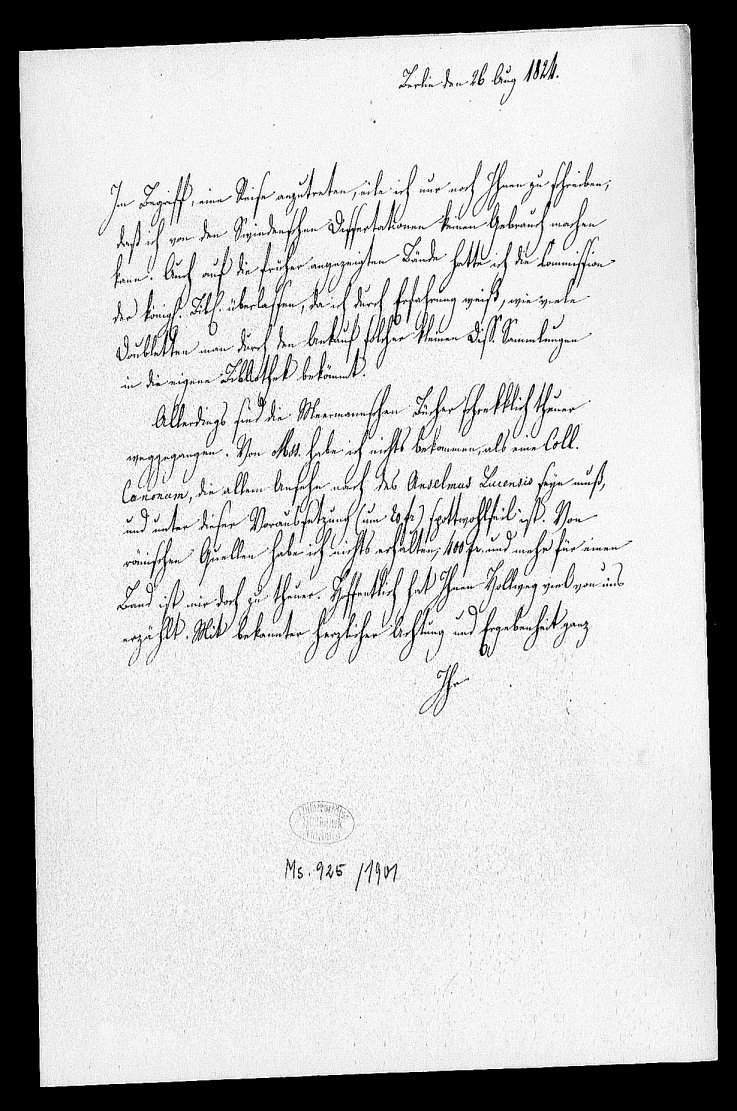 Berlin den 26 Aug 1824.
Im Begriff, eine Reise anzutreten, eile ich nur noch Ihnen zu schreiben,
daß ich von den Swindenschen Dissertationen keinen Gebrauch machen
kann. Auch auf die früher angezeigten Bände hatte ich die Commission
der königl. Bibl. überlassen, da ich durch Erfahrung weiß, wie viele
Doubletten man durch den Ankauf solcher kleinen Diss. Sammlungen
in die eigene Bibliothek bekömmt.
Allerdings sind die Meermannschen Bücher schrekklich theuer
weggegangen. Von Mss. habe ich nichts bekommen, als eine Coll.
Canonum, die allem Ansehn nach des Anselmus Lucensis seyn muß,
und unter dieser Voraussetzung (um 20 fr) spottwohlfeil ist. Von
römischen Quellen habe ich nichts erhalten; 400 fr. und mehr für einen
Band ist mir doch zu theuer. Hoffentlich hat Ihnen Hollweg viel von uns
erzählt. Mit bekannter herzlicher Achtung und Ergebenheit ganz
Ihr
Ms. 925 /1901